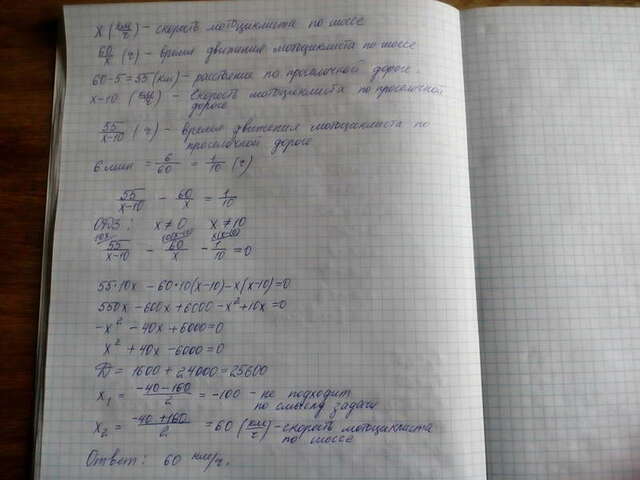 x (км/ч) - скорость мотоциклиста по шоссе
60/x (ч) - время движения мотоциклиста по шоссе
60-5=55 (км) - расстояние по проселочной дороге.
x-10 (км/ч) - скорость мотоциклиста по проселочной
дороге
55/x-10 (ч) - время движения мотоциклиста по
проселочной дороге
6 мин = 6/60 = 1/10 (ч)
55/x-10 - 60/x = 1/10
ОДЗ: x≠0 x≠10
10x 10(x-10) x(x-10)
55/x-10 - 60/x - 1/10 = 0
55·10x - 60·10(x-10) - x(x-10)=0
550x - 600x + 6000 - x² + 10x = 0
-x² - 40x + 6000=0
x² + 40x - 6000=0
D = 1600 + 24000 = 25600
x₁ = -40-160/2 = -100 - не подходит
по смыслу задачи
x₂ = -40+160/2 = 60 (км/ч) - скорость мотоциклиста
по шоссе
Ответ: 60 км/ч.